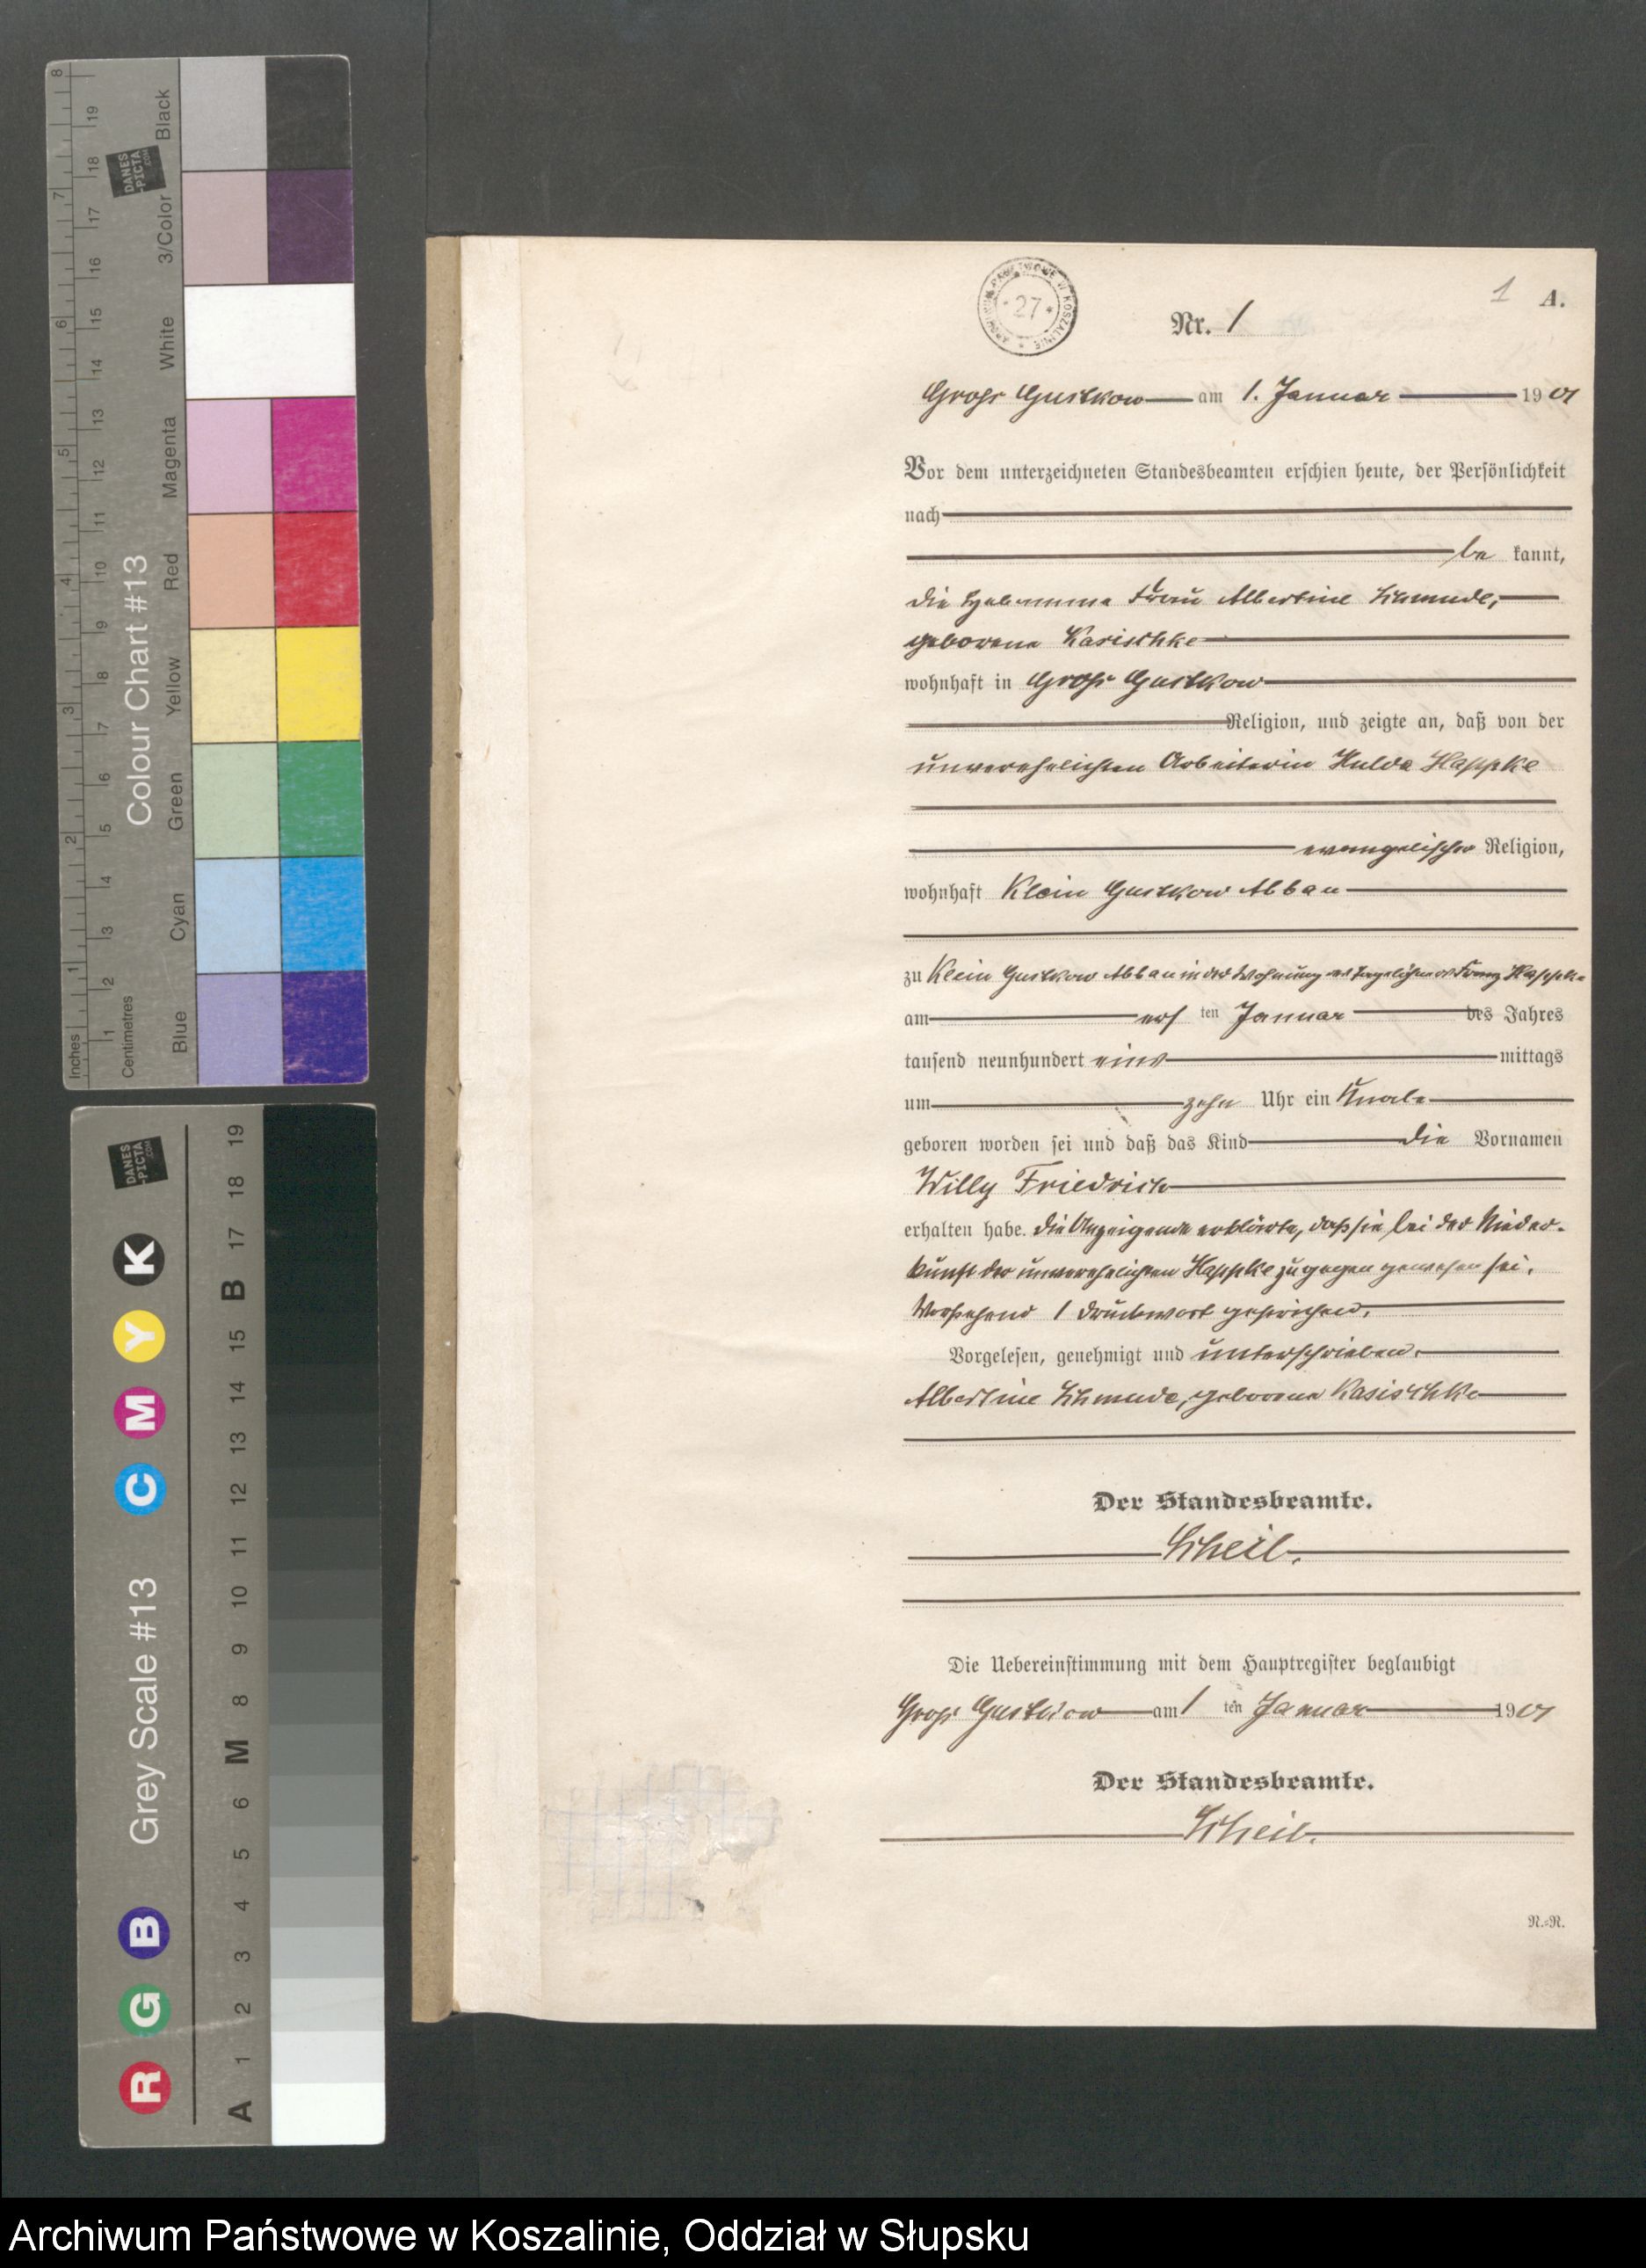 Inches 1 2 3 4 5 6 7 8
Centimetres 1 2 3 4 5 6 7 8 9 10 11 12 13 14 15 16 17 18 19
Colour Chart #13
DANES
-PICTA
.COM
Blue Cyan Green Yellow Red Magenta White 3/Color Black
Grey Scale #13
DANES
-PICTA
.COM
R G B C M Y K
A 1 2 3 4 5 6 M 8 9 10 11 12 13 14 15 B 17 18 19
ARCHIWUM PAŃSTWOWE W KOSZALINIE
* 27 *
1 A.
Nr. 1
Groß Gustkow am 1. Januar 1901
Vor dem unterzeichneten Standesbeamten erschien heute, der Persönlichkeit
nach
be kannt,
die Hebamme Frau Albertine Schmude,
geborene Kasischke
wohnhaft in Groß Gustkow
Religion, und zeigte an, daß von der
unverehelichten Arbeiterin Hulda Happke
evangelischer Religion,
wohnhaft Klein Gustkow Abbau
zu Klein Gustkow Abbau in der Wohnung des Tagelöhners Franz Happke
am ersten Januar des Jahres
tausend neunhundert eins mittags
um zehn Uhr ein Knabe
geboren worden sei und daß das Kind die Vornamen
Willy Friedrich
erhalten habe. Die Anzeigende erklärte, daß sie bei der Nieder-
kunft der unverehelichten Happke zugegen gewesen sei.
Vorstehend 1 Druckwort gestrichen.
Vorgelesen, genehmigt und unterschrieben.
Albertine Schmude, geborene Kasischke
Der Standesbeamte.
Scheil.
Die Uebereinstimmung mit dem Hauptregister beglaubigt
Groß Gustkow am 1 ten Januar 1901
Der Standesbeamte.
Scheil.
N.=N.
Archiwum Państwowe w Koszalinie, Oddział w Słupsku